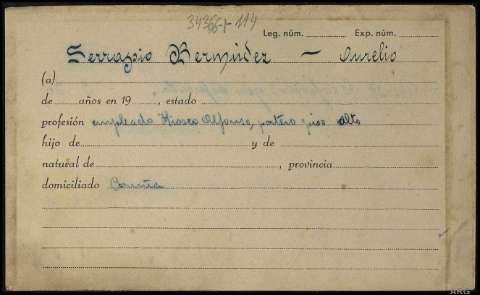 34366-1-114
Leg. núm. Exp. núm.
Serrapio Bermúdez - Aurelio
(a)
de años en 19, estado
profesión empleado Kiosco Alfonso, portero piso alto
hijo de y de
natural de, provincia
domiciliado Coruña
ARG